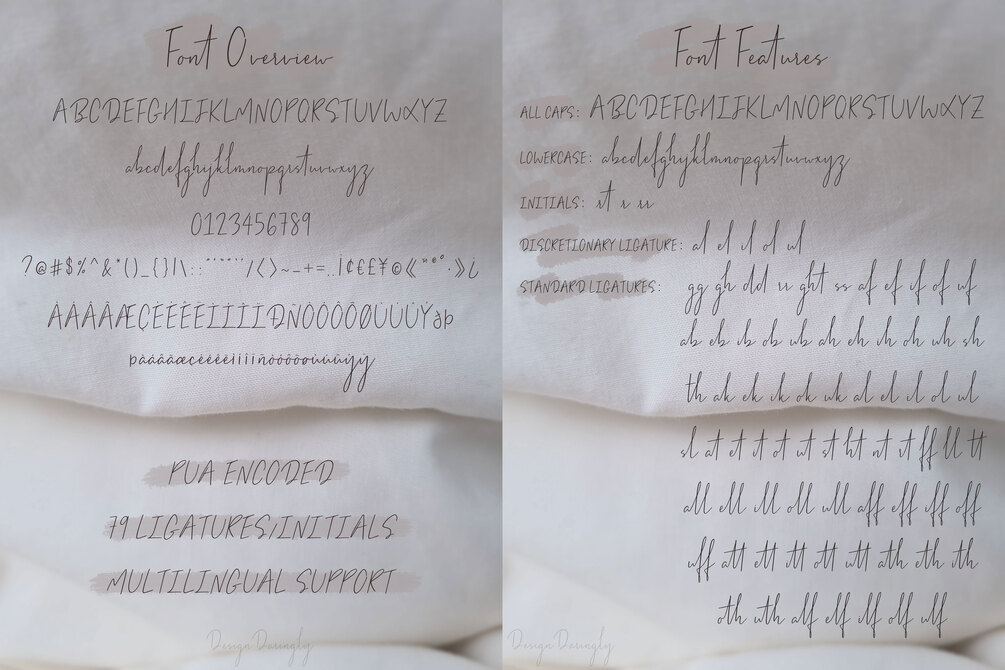 Font Overview
ABCDEFGHIJKLMNOPQRSTUVWXYZ
abcdefghijklmnopqrstuvwxyz
0123456789
PUA ENCODED
79 LIGATURES/INITIALS
MULTILINGUAL SUPPORT
Design Daringly
Font Features
ALL CAPS: ABCDEFGHIJKLMNOPQRSTUVWXYZ
LOWERCASE: abcdefghijklmnopqrstuvwxyz
INITIALS:
DISCRETIONARY LIGATURE: al el il ol ul
STANDARD LIGATURES: gg gh dd rr ght ss af ef if of uf
ab eb ib ob ub ah eh ih oh uh sh
th ak ek ik ok uk al el il ol ul
sl at et it ot ut st ht nt rt ff ll tt
all ell ill oll ull aff eff iff off
uff att ett itt ott utt ath eth ith
oth uth alf elf ilf olf ulf
Design Daringly